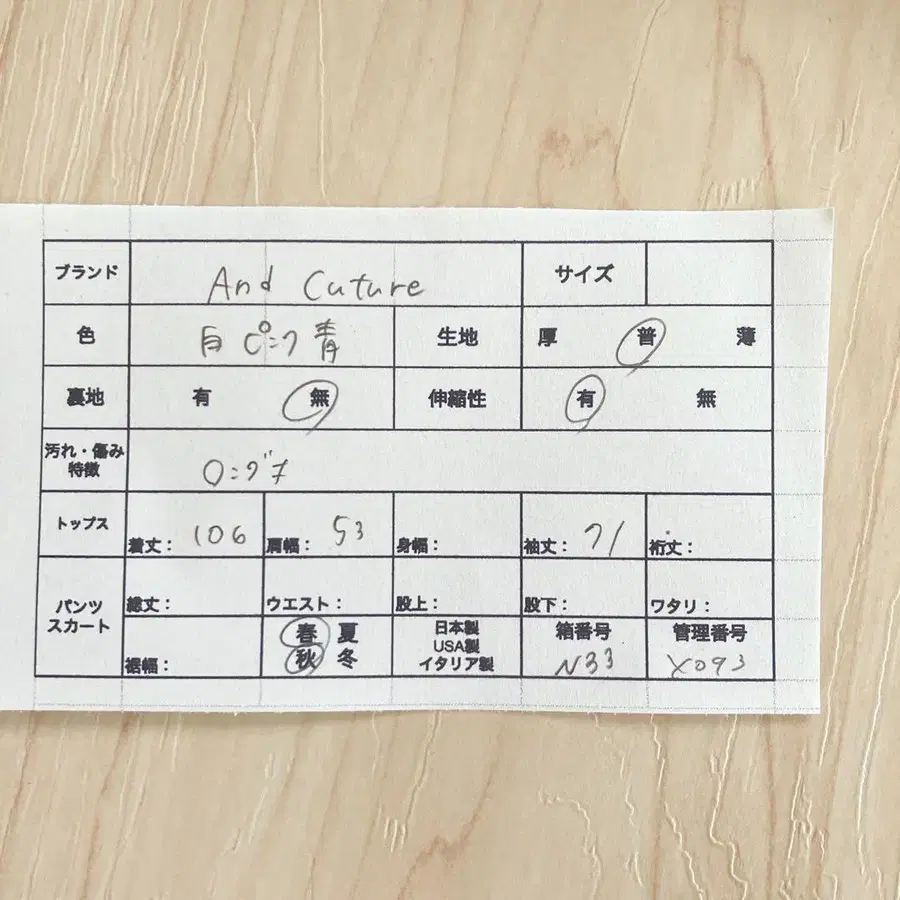 ブランド And Cuture サイズ
色 白 ピンク 青 生地 厚 普 薄
裏地 有 無 伸縮性 有 無
汚れ・傷み
特徴 ロング
トップス 着丈: 106 肩幅: 53 身幅: 袖丈: 71 裄丈:
パンツ
スカート
総丈: ウエスト: 股上: 股下: ワタリ:
裾幅: 春 夏
秋 冬
日本製
USA製
イタリア製
箱番号
N33
管理番号
X093